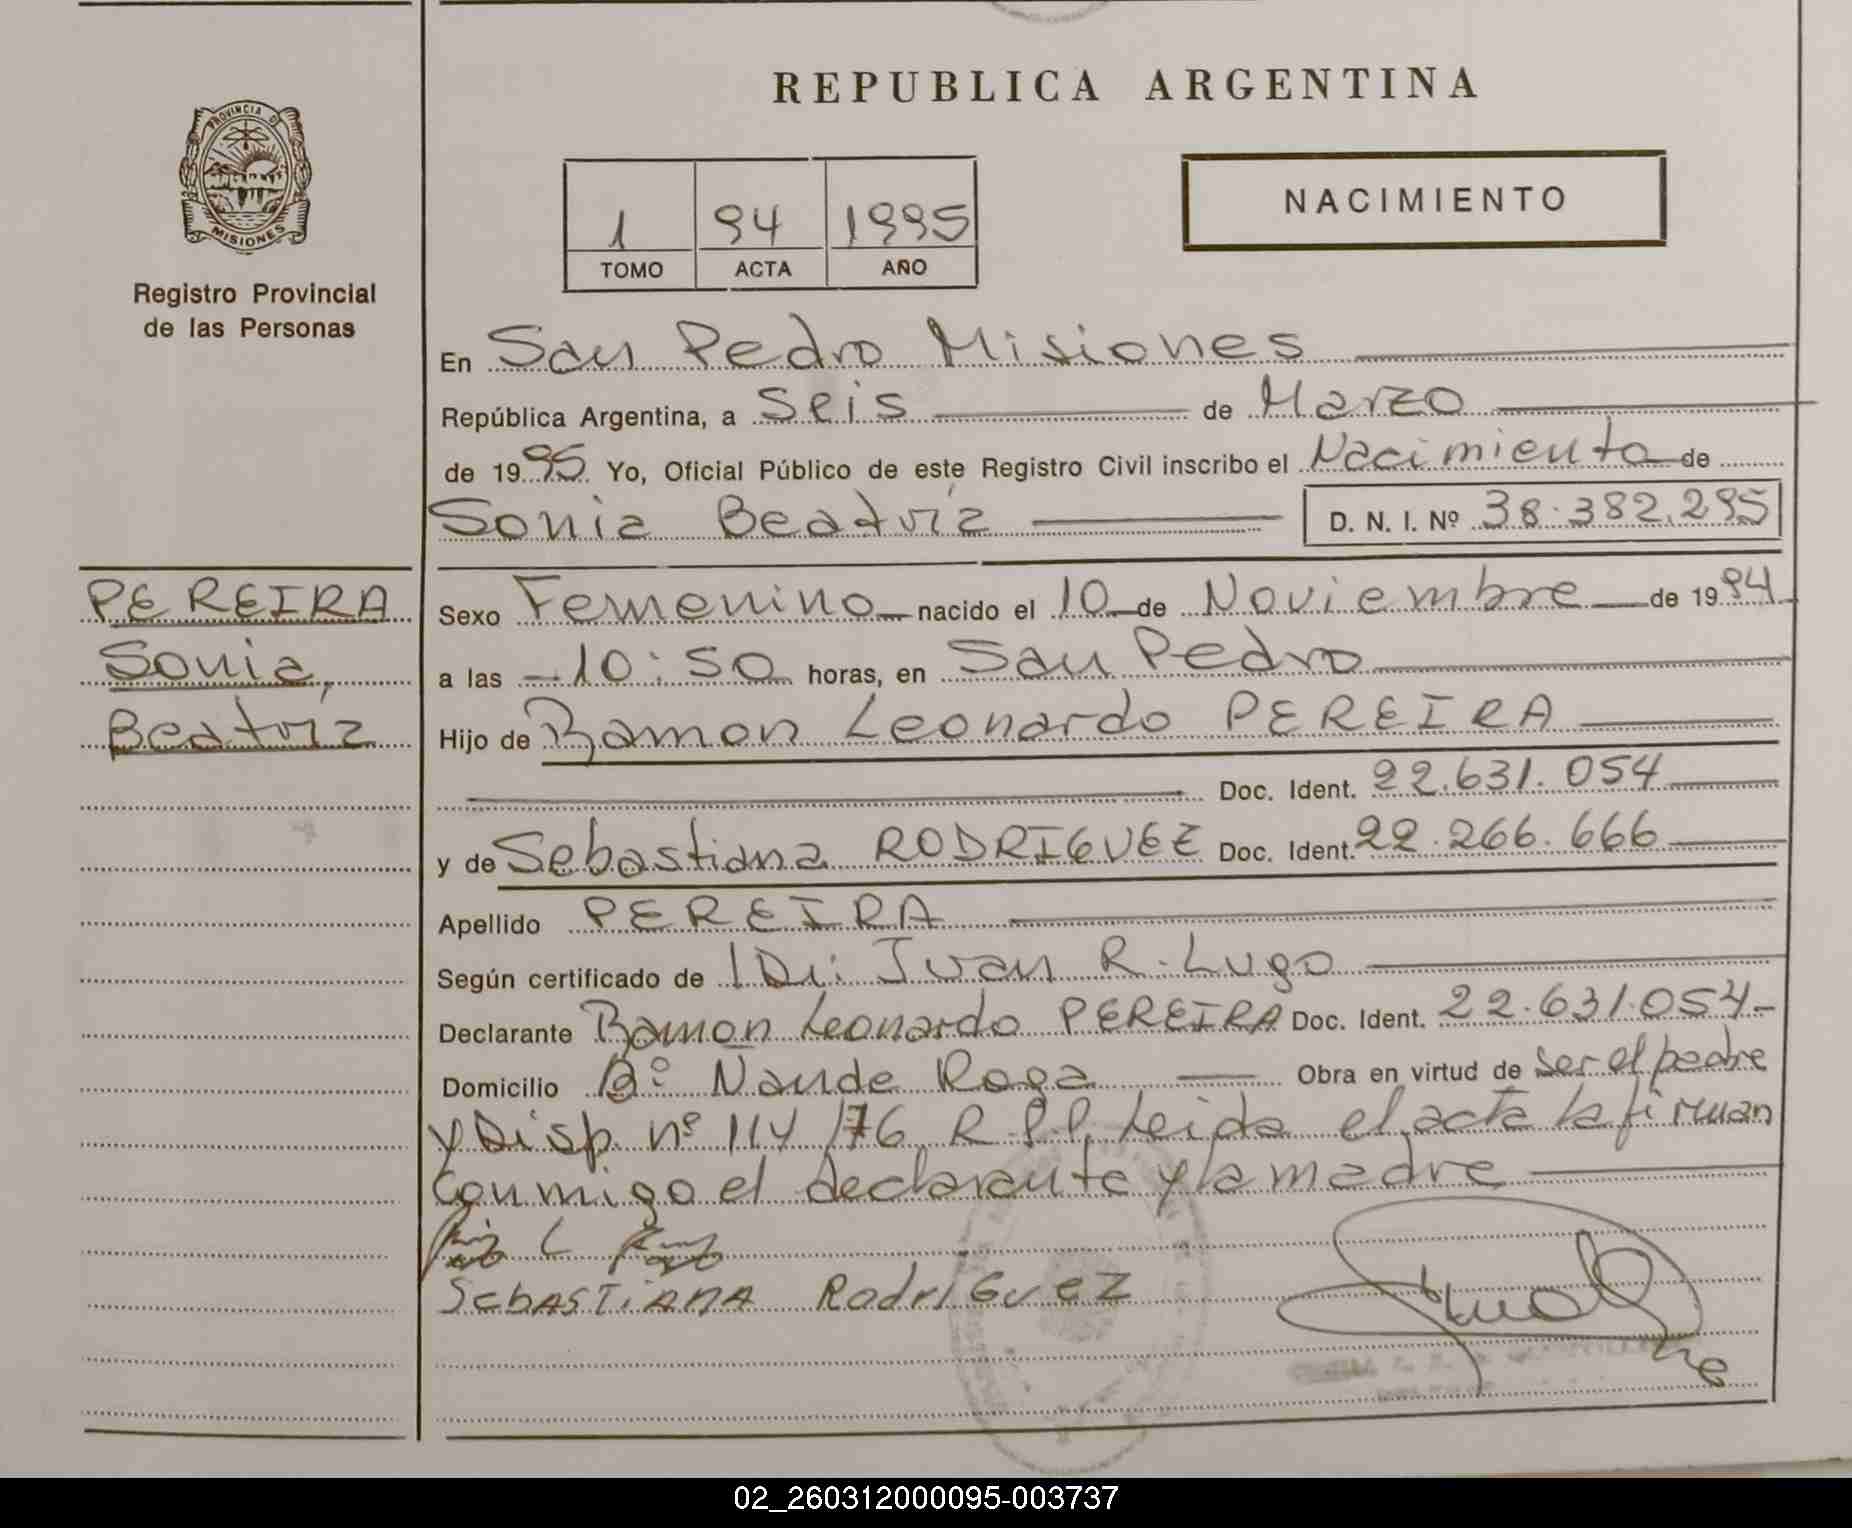 REPUBLICA ARGENTINA
PROVINCIA D
MISIONES
Registro Provincial
de las Personas
1 94 1995
TOMO ACTA AÑO
NACIMIENTO
En San Pedro Misiones
República Argentina, a Seis de Marzo
de 1995 Yo, Oficial Público de este Registro Civil inscribo el Nacimiento de
Sonia Beatríz D. N. I. Nº 38.382.295
PEREIRA
Sonia,
Beatríz
Sexo Femenino nacido el 10 de Noviembre de 1994
a las 10:50 horas, en San Pedro
Hijo de Ramon Leonardo PEREIRA
Doc. Ident. 22.631.054
y de Sebastiana RODRIGUEZ Doc. Ident. 22.266.666
Apellido PEREIRA
Según certificado de Dr: Juan R. Lugo
Declarante Ramon Leonardo PEREIRA Doc. Ident. 22.631.054
Domicilio Bº Ñande Roga Obra en virtud de ser el padre
y Disp. nº 114/76 R.P.P. Leida el acta la firman
conmigo el declarante y la madre
SebASTiANA RodriGuez
02_260312000095-003737